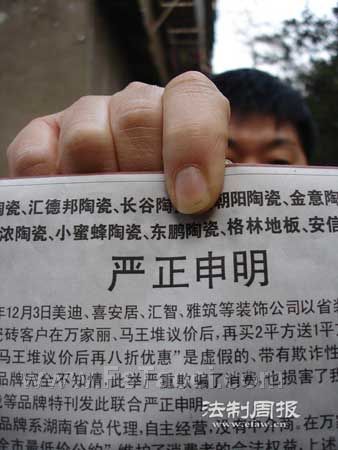 陶瓷、汇德邦陶瓷、长谷陶 朝阳陶瓷、金意陶
浓陶瓷、小蜜蜂陶瓷、东鹏陶瓷、格林地板、安信
严正申明
年12月3日美迪、喜安居、汇智、雅筑等装饰公司以省装
瓷砖客户在万家丽、马王堆议价后,再买2平方送1平方
马王堆议价后再八折优惠”是虚假的、带有欺诈性
品牌完全不知情,此举严重欺骗了消费 损害了我
等品牌特刊发此联合严正申明
品牌系湖南省总代理,自主经营,
法制周报
www.efaw.cn